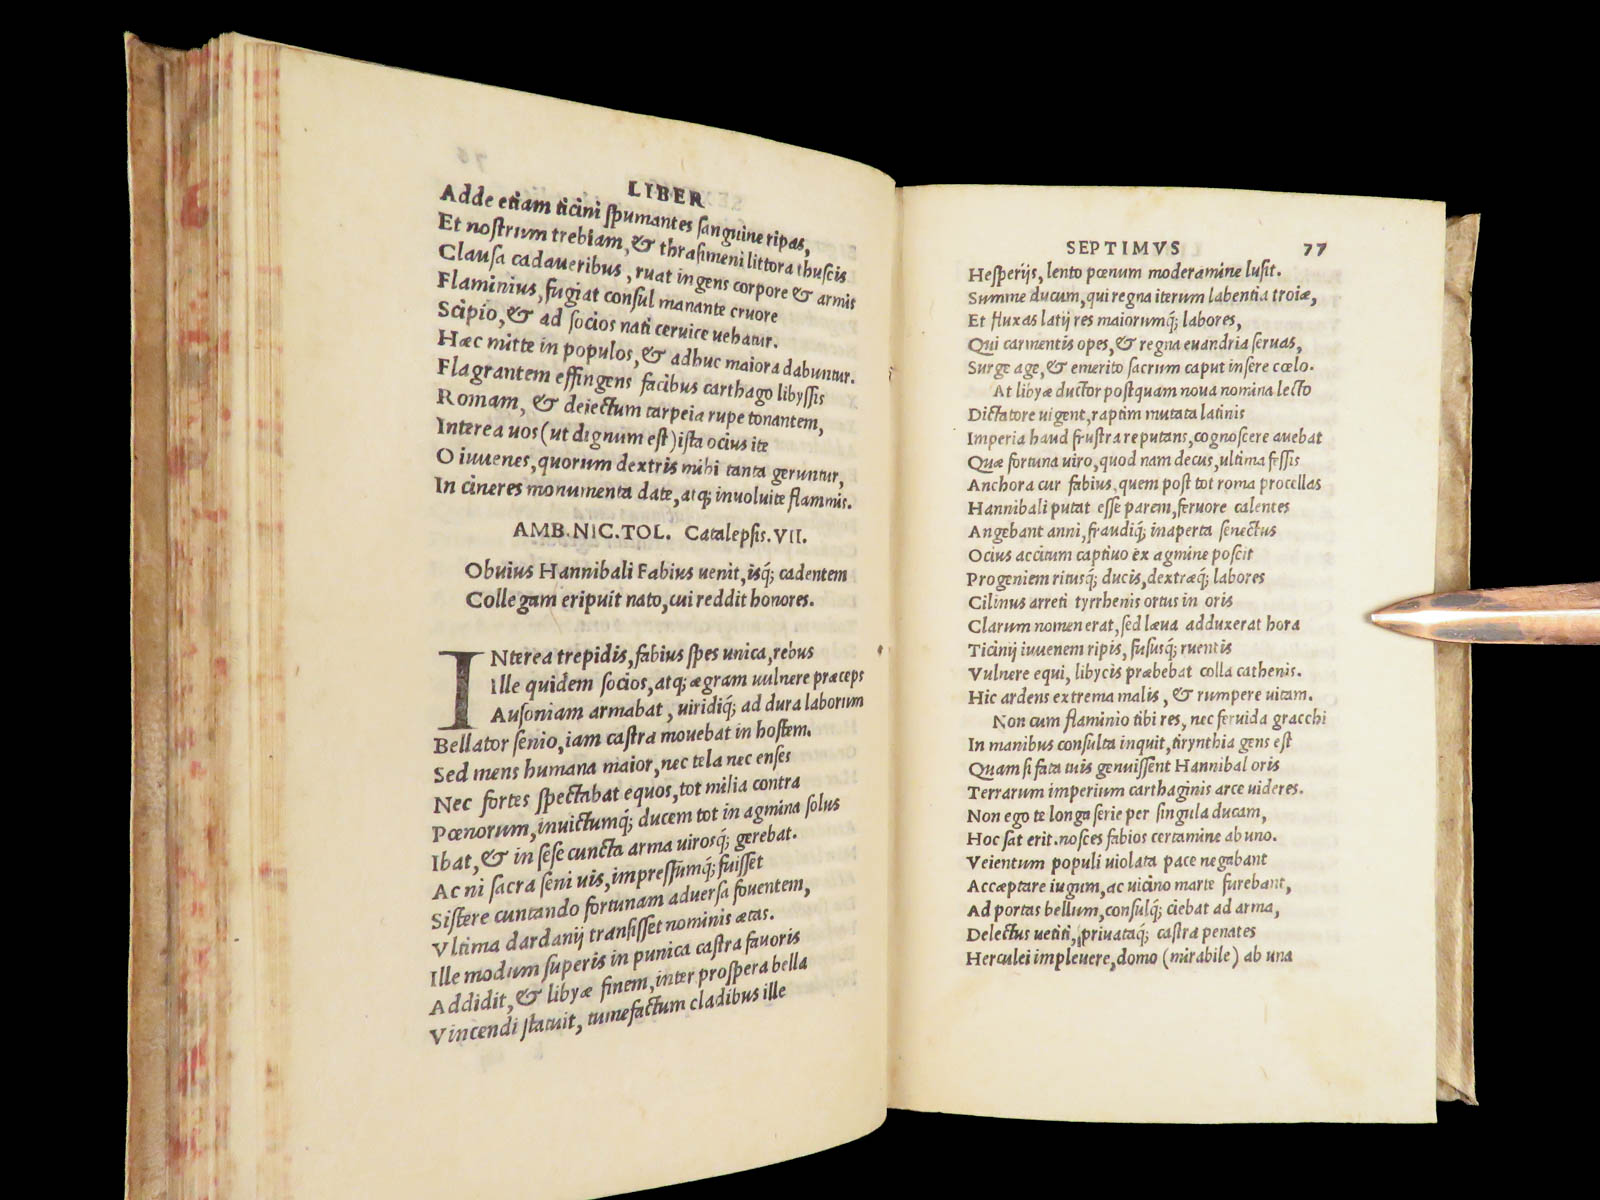 LIBER
Adde etiam ticini ſpumantes ſanguine ripas,
Et noſtrum trebiam, & thraſimeni littora thuſcis
Clauſa cadaueribus, ruat ingens corpore & armis
Flaminius, fugiat conſul manante cruore
Scipio, & ad ſocios nati ceruice uehatur.
Hæc mitte in populos, & adhuc maiora dabuntur.
Flagrantem effingens facibus carthago libyſſis
Romam, & deiectum tarpeia rupe tonantem,
Interea uos (ut dignum eſt) iſta ocius ite
O iuuenes, quorum dextris mihi tanta geruntur,
In cineres monumenta date, atq; inuoluite flammis.
AMB. NIC. TOL. Catalepſis. VII.
Obuius Hannibali Fabius uenit, isq́; cadentem
Collegam eripuit nato, cui reddit honores.
INterea trepidis, fabius ſpes unica, rebus
Ille quidem ſocios, atq; ægram uulnere præceps
Auſoniam armabat, uiridiq́; ad dura laborum
Bellator ſenio, iam caſtra mouebat in hoſtem.
Sed mens humana maior, nec tela nec enſes
Nec fortes ſpectabat equos, tot milia contra
Pœnorum, inuictumq́; ducem tot in agmina ſolus
Ibat, & in ſeſe cuncta arma uirosq́; gerebat.
Ac ni ſacra ſeni uis, impreſſumq́; fuiſſet
Siſtere cuntando fortunam aduerſa fouentem,
Vltima dardanij tranſiſſet nominis ætas.
Ille modum ſuperis in punica caſtra fauoris
Addidit, & libyæ finem, inter proſpera bella
Vincendi ſtatuit, tumefactum cladibus ille
SEPTIMVS 77
Heſperijs, lento pœnum moderamine luſit.
Summe ducum, qui regna iterum labentia troiæ,
Et fluxas latij res maiorumq́; labores,
Qui carmentis opes, & regna euandria ſeruas,
Surge age, & emerito ſacrum caput inſere cœlo.
At libyæ ductor poſtquam noua nomina lecto
Dictatore uigent, raptim mutata latinis
Imperia haud fruſtra reputans, cognoſcere auebat
Quæ fortuna uiro, quod nam decus, ultima feſſis
Anchora cur fabius, quem poſt tot roma procellas
Hannibali putat eſſe parem, feruore calentes
Angebant anni, fraudiq́; inaperta ſenectus
Ocius accitum captiuo ex agmine poſcit
Progeniem ritusq́; ducis, dextræq́; labores
Cilinus arreti tyrrhenis ortus in oris
Clarum nomen erat, ſed læua adduxerat hora
Ticinij iuuenem ripis, fuſusq́; ruentis
Vulnere equi, libycis præbebat colla cathenis.
Hic ardens extrema malis, & rumpere uitam.
Non cum flaminio tibi res, nec feruida gracchi
In manibus conſulta inquit, tirynthia gens eſt
Quam ſi fata tuis genuiſſent Hannibal oris
Terrarum imperium carthaginis arce uideres.
Non ego te longa ſerie per ſingula ducam,
Hoc ſat erit. noſces fabios certamine ab uno.
Veientum populi uiolata pace negabant
Accæptare iugum, ac uicino marte furebant,
Ad portas bellum, conſulq́; ciebat ad arma,
Delectus uetiti, priuataq́; caſtra penates
Herculei impleuere, domo (mirabile) ab una